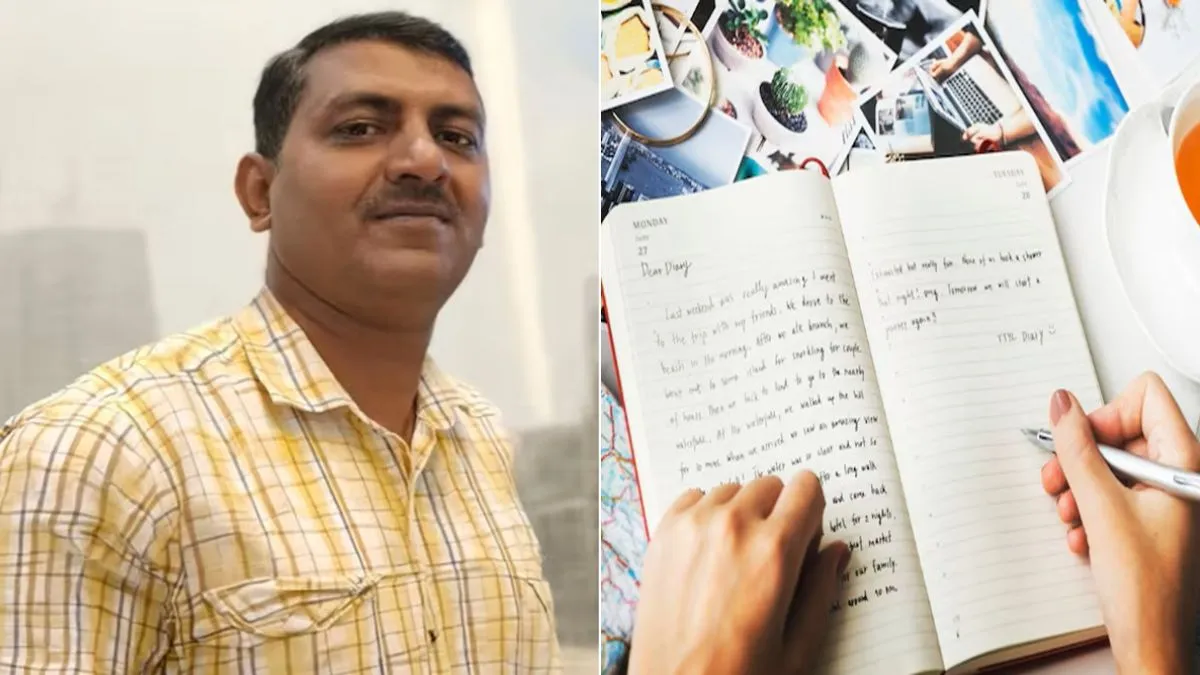 MONDAY
27
Dear Diary
Last weekend was really amazing. I went
to the trip with my friends. We drove to the
beach in the morning. After we ate brunch, we
went out to some island for snorkling for couple
of hours. Then we back to land to go to the nearby
waterfall. At the waterfall, we walked up the hill
for 30 mins. When we arrived we saw an amazing view
The water was so clear and not so
after a long walk
and came back
hotel for 2 nights.
market
for our family.
around 10 pm.
TUESDAY
28
exhausted but really fun. None of us took a shower
that night! omg. Tomorrow we will start a
journey again!!
TTYL Diary